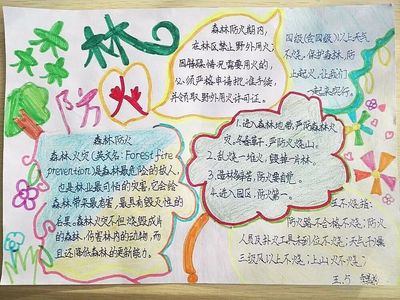 林
防
火
森林防火期内，
在林区禁止野外用火；
因特殊情况需要用火的，
必须严格申请批准手续，
并领取野外用火许可证。
四级(含四级)以上天气
不烧。保护森林，防
止起火，让我们
一起来
森林防火
森林火灾(英文名：Forest fire
prevention)是森林最危险的敌人，
也是林业最可怕的灾害，它会给
森林带来最有害，最具有毁灭性的
后果。森林火灾不但烧毁成片
的森林，伤害林内的动物，而
且还降低森林的更新能力。
1.进入森林地带，严防森林火
灾。冬春季干，严防烧山。
2.乱烧一堆火，毁掉一片林。
3.造林
4.进入园区，防火第一。
不烧：
防火路不合格不烧；防火
人员及扑火工具未到位不烧；天气不
三级风以上不烧；上山火不烧；